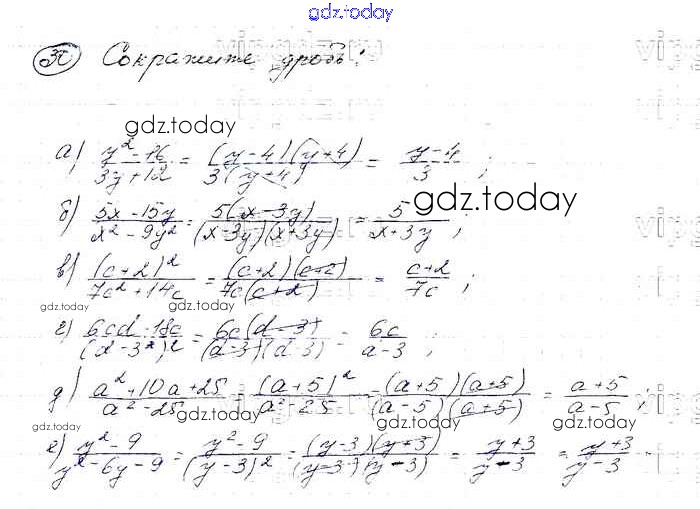 gdz.today
30 Сократите дробь:
gdz.today
а) (y² - 16)/(3y + 12) = ((y - 4)(y + 4))/(3(y + 4)) = (y - 4)/3 ;
gdz.today
б) (5x - 15y)/(x² - 9y²) = (5(x - 3y))/((x - 3y)(x + 3y)) = 5/(x + 3y) ;
в) (c + 2)²/(7c² + 14c) = ((c + 2)(c + 2))/(7c(c + 2)) = (c + 2)/(7c) ;
gdz.today gdz.today
г) (6cd - 18c)/(d - 3)² = (6c(d - 3))/((d - 3)(d - 3)) = 6c/(a - 3) ;
д) (a² + 10a + 25)/(a² - 25) = (a + 5)²/(a² - 25) = ((a + 5)(a + 5))/((a - 5)(a + 5)) = (a + 5)/(a - 5) ;
gdz.today gdz.today gdz.today
е) (y² - 9)/(y² - 6y - 9) = (y² - 9)/(y - 3)² = ((y - 3)(y + 3))/((y - 3)(y - 3)) = (y + 3)/(y - 3) = (y + 3)/(y - 3)
gdz.today